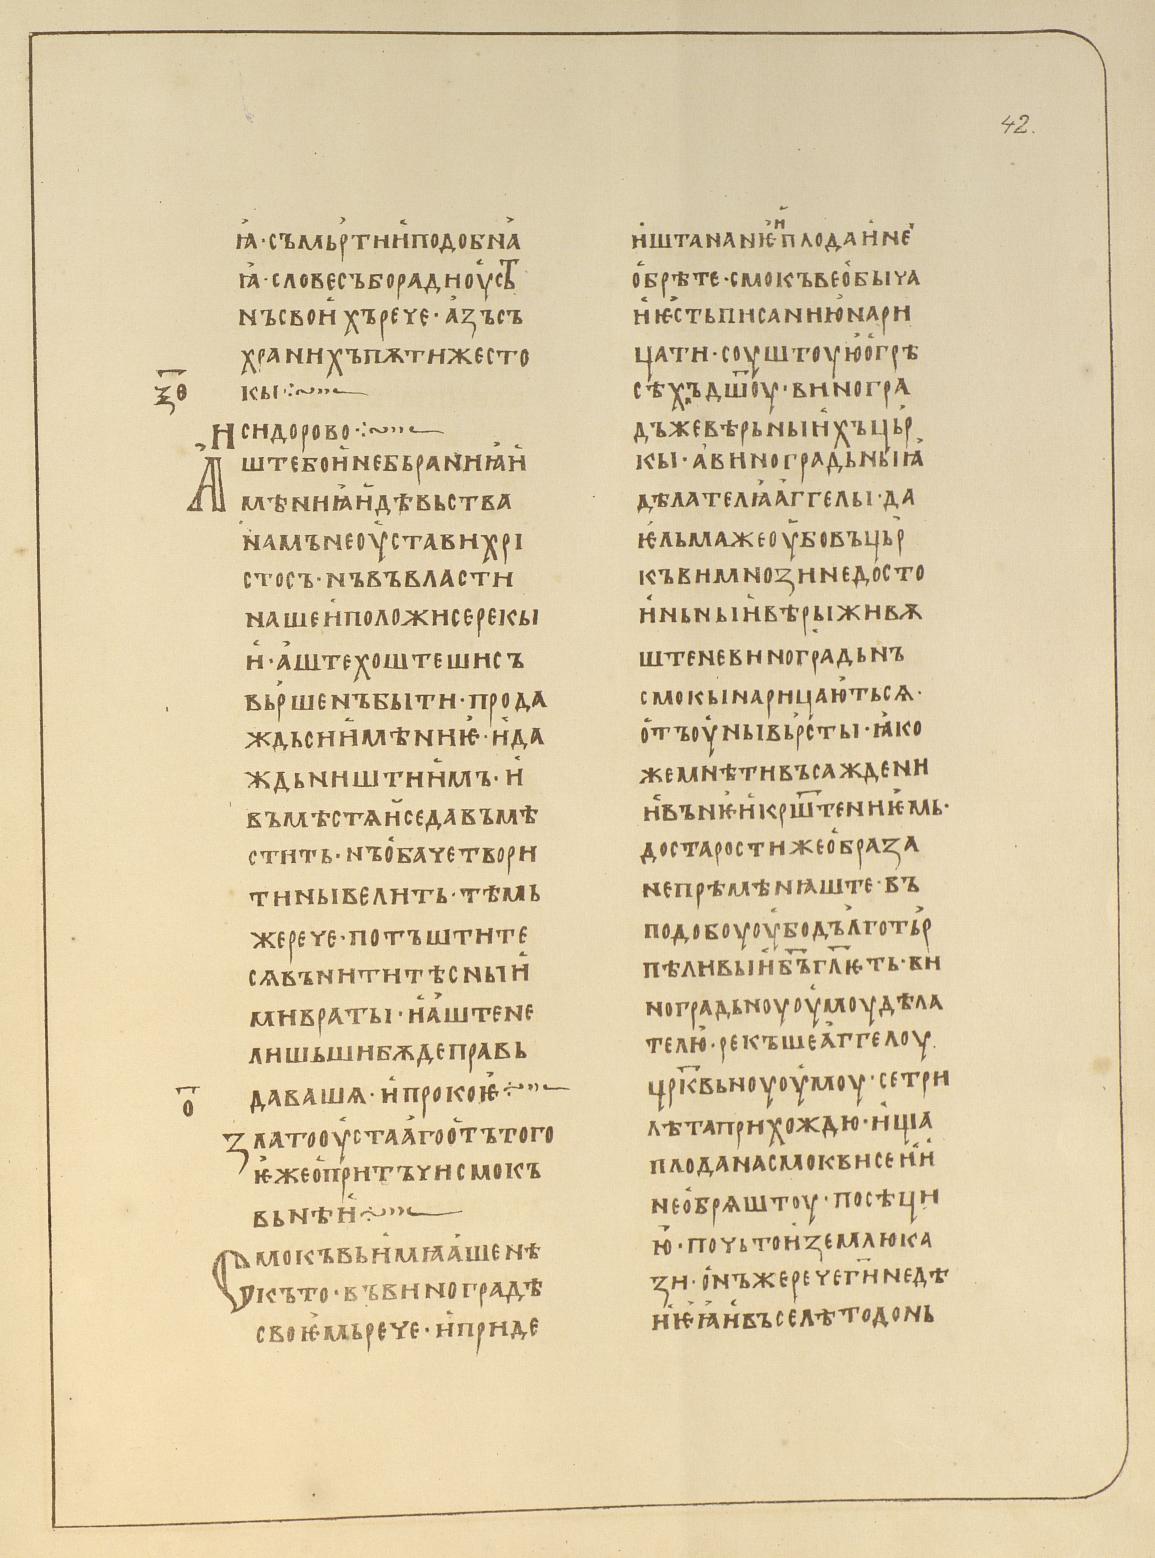 42.
ꙗ·съмьртнꙑиподобьна
ꙗ·словесъборадиоусⷮъ
нъсвои хърече·азъсъ
хранихъпѫтижесто
ѯѳ
кы
Исидорово
Аштебоинебьраниꙗи
мѣниꙗидѣвьства
намънеоуставихрі
стосъ·нъвъвласти
нашеиположисерекы
и·аштехоштешисъ
вьршенъбыти·прода
ждьсиимѣниѥ·ида
ждьништиимъ·и
въмѣстѧиседавъмѣ
стить·нъобачетвори
тинывелить·тѣмь
жерече·потъштите
сѧвънититѣсныи
мивраты·иаштене
лишьшибѫдеправь
о
даваша·ипрокоѥ
Златооустаагоотътого
ѥжеопритъчисмокъ
вьнѣи
Смокъвьимꙗашенѣ
къто·въвиноградѣ
своѥмьрече·ииприде
иштананѥиплодаине
обрѣте·смокъвеобыча
иѥстьписаниюнари
цати·соуштоуюогрѣ
сѣхъдш҃оу·виногра
дъжевѣрьныихъцьр
кы·авиноградьныꙗ
дѣлателꙗаггелы·да
ѥльмажеоубовъцьр
къвимнозинедосто
иньныивѣрыживѫ
штеневиноградьнъ
смокынарицаютьсѧ·
отъоуньвьрсты·ꙗко
жемнѣтивъсаждени
ивънѥ·икрш҃тениѥмь·
достаростижеобраза
непрѣмѣнꙗште·въ
подобоуоубодълготьр
пѣливыиб҃ъгл҃ѥть·ви
ноградьноуоумоудѣла
телю·рекъшеаггелоу
цр҃кьвьноуоумоу·сетри
лѣтаприхождю·ища
плоданасмоквисеии
необрѧштоу·посѣци
ю·почьтоиземлюка
зи·онъжеречег҃инедѣ
иѥꙗивъселѣтодонь